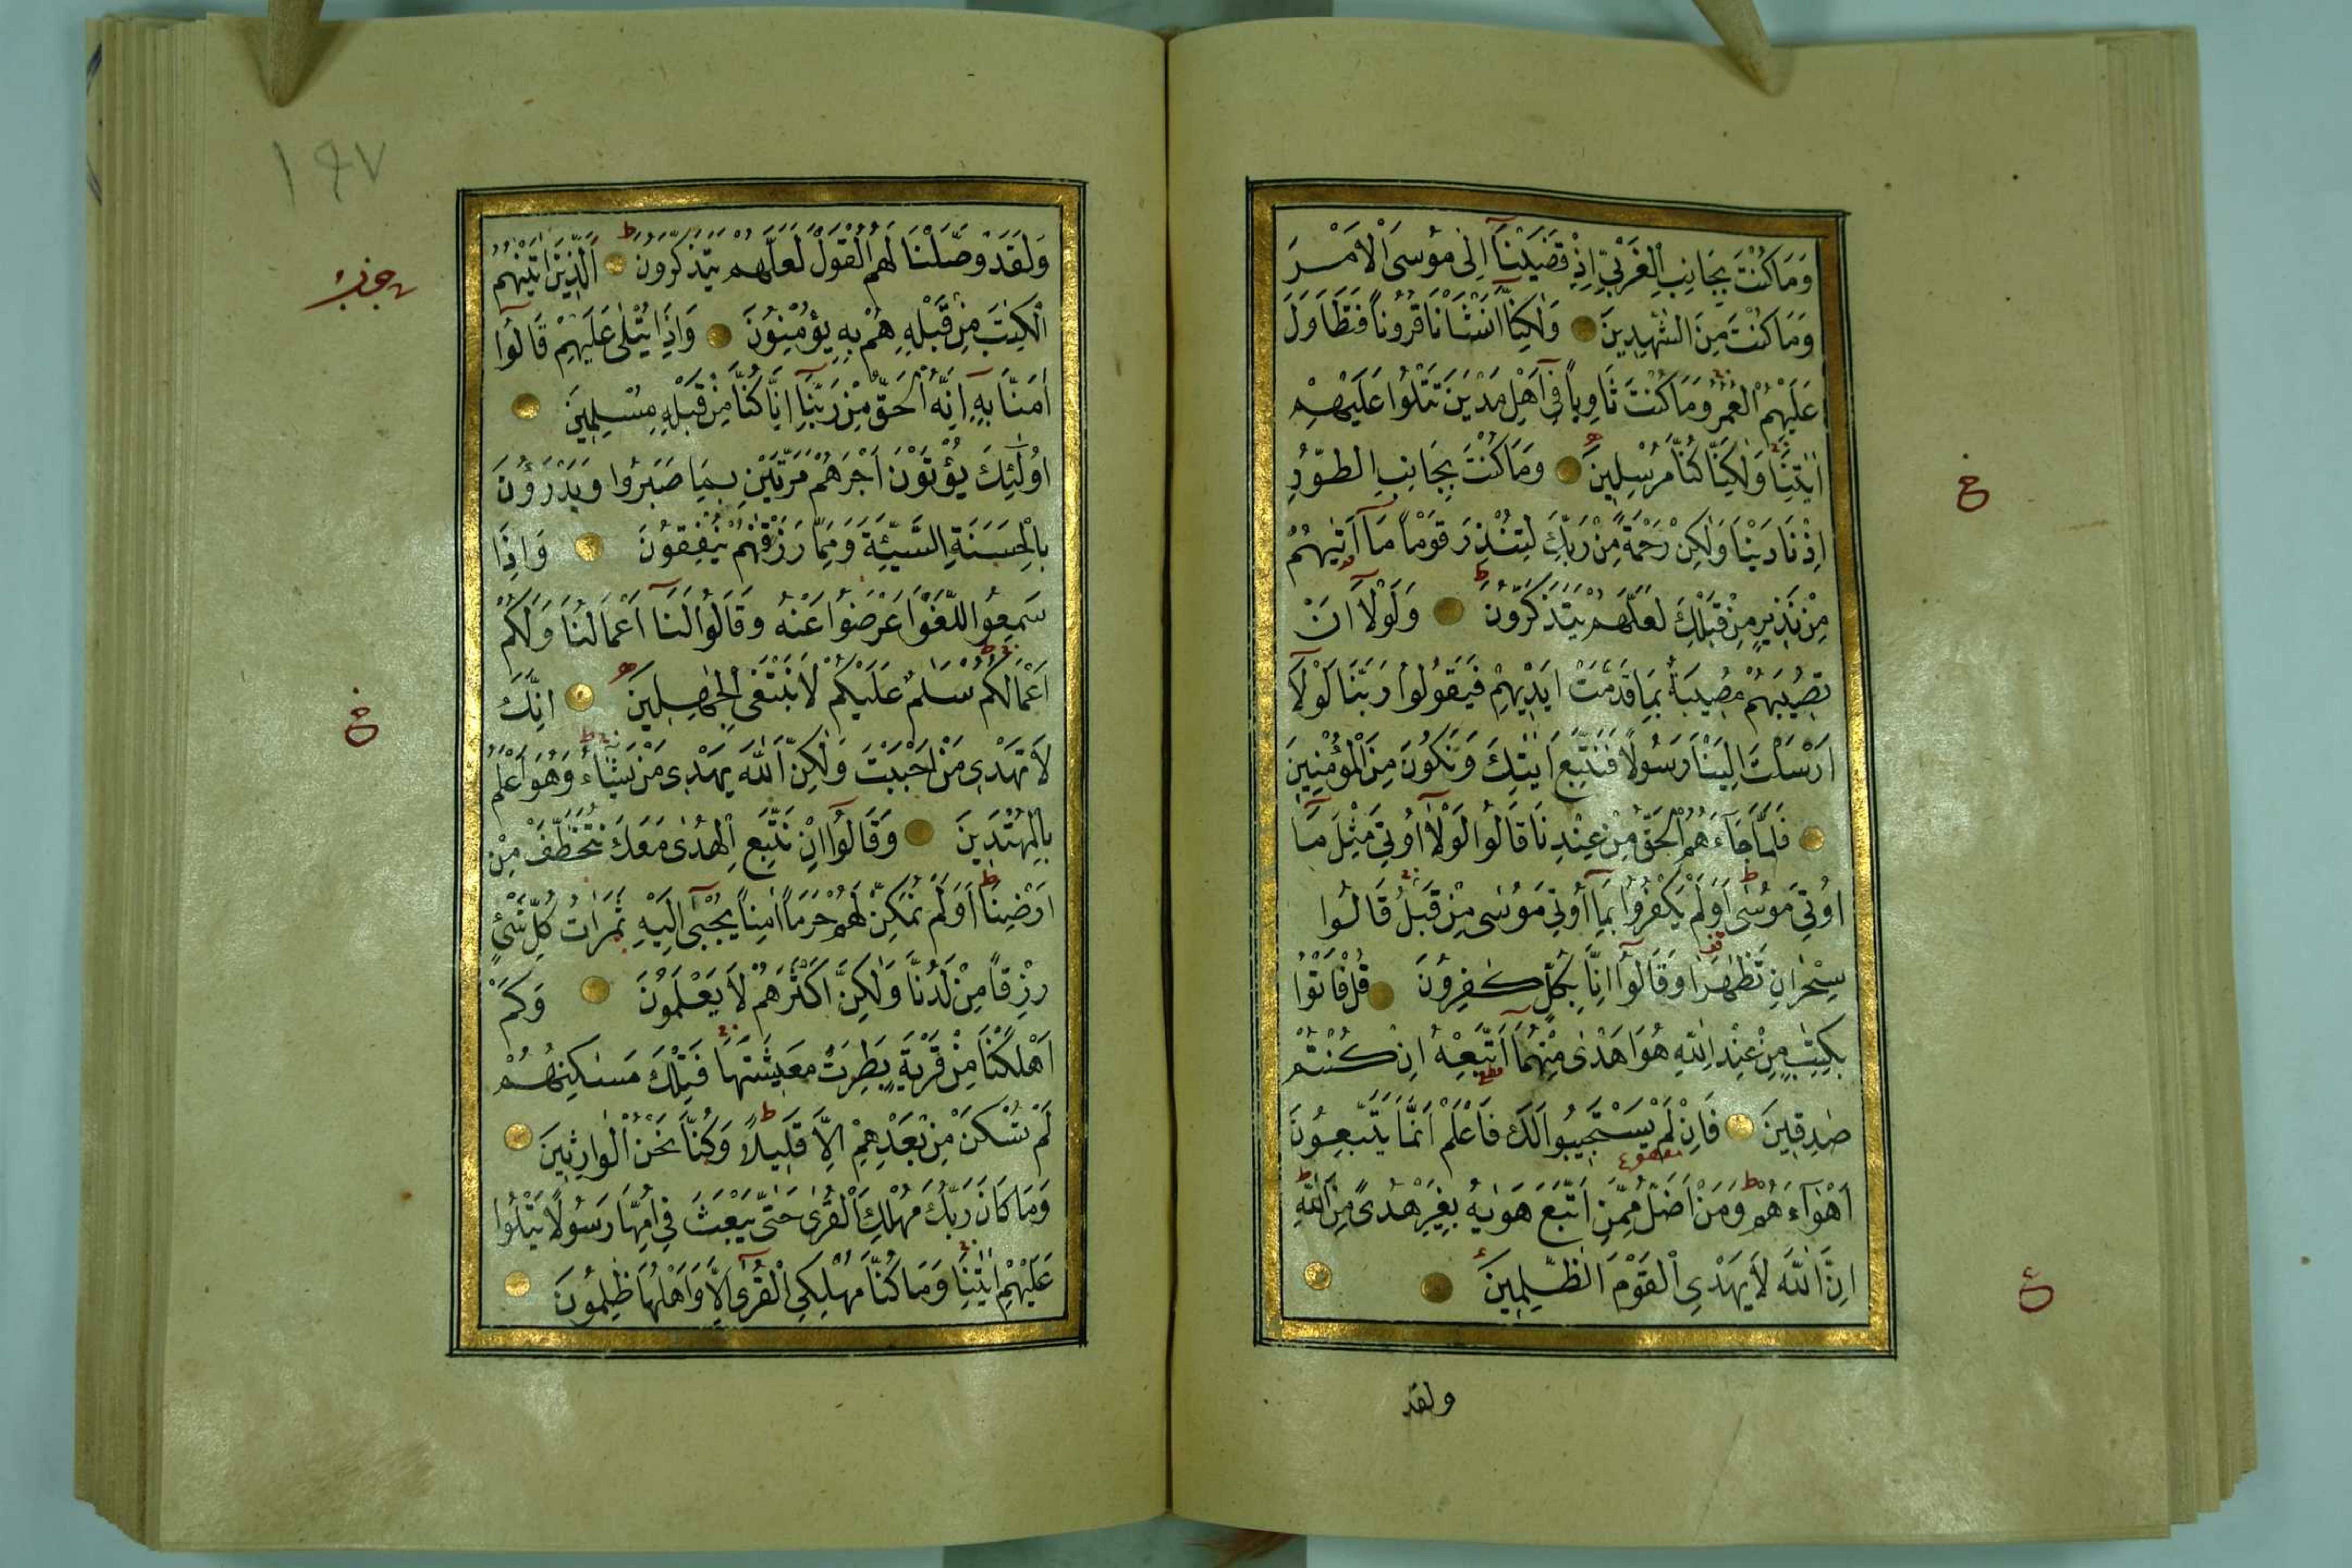 وَمَا كُنْتَ بِجَانِبِ الْغَرْبِيِّ اِذْ قَضَيْنَٓا اِلٰى مُوسَى الْاَمْرَ
وَمَا كُنْتَ مِنَ الشّٰهِدِينَ وَلٰكِنَّٓا اَنْشَاْنَا قُرُوناً فَتَطَاوَلَ
عَلَيْهِمُ الْعُمُرُ وَمَا كُنْتَ ثَاوِياً فِٓي اَهْلِ مَدْيَنَ تَتْلُوا عَلَيْهِمْ
اٰيٰتِنَا وَلٰكِنَّا كُنَّا مُرْسِلِينَ وَمَا كُنْتَ بِجَانِبِ الطُّورِ
اِذْ نَادَيْنَا وَلٰكِنْ رَحْمَةً مِنْ رَبِّكَ لِتُنْذِرَ قَوْماً مَٓا اَتٰيهُمْ
مِنْ نَذِيرٍ مِنْ قَبْلِكَ لَعَلَّهُمْ يَتَذَكَّرُونَ وَلَوْلَٓا اَنْ
تُصِيبَهُمْ مُصِيبَةٌ بِمَا قَدَّمَتْ اَيْدِيهِمْ فَيَقُولُوا رَبَّنَا لَوْلَٓا
اَرْسَلْتَ اِلَيْنَا رَسُولًا فَنَتَّبِعَ اٰيٰتِكَ وَنَكُونَ مِنَ الْمُؤْمِنِينَ
فَلَمَّا جَٓاءَهُمُ الْحَقُّ مِنْ عِنْدِنَا قَالُوا لَوْلَٓا اُوتِيَ مِثْلَ مَٓا
اُوتِيَ مُوسٰى اَوَلَمْ يَكْفُرُوا بِمَٓا اُوتِيَ مُوسٰى مِنْ قَبْلُ قَالُوا
سِحْرَانِ تَظٰهَرَا وَقَالُٓوا اِنَّا بِكُلٍّ كٰفِرُونَ قُلْ فَاْتُوا
بِكِتٰبٍ مِنْ عِنْدِ اللّٰهِ هُوَ اَهْدٰى مِنْهُمَٓا اَتَّبِعْهُ اِنْ كُنْتُمْ
صٰدِقِينَ فَاِنْ لَمْ يَسْتَجِيبُوا لَكَ فَاعْلَمْ اَنَّمَا يَتَّبِعُونَ
اَهْوَٓاءَهُمْ وَمَنْ اَضَلُّ مِمَّنِ اتَّبَعَ هَوٰيهُ بِغَيْرِ هُدًى مِنَ اللّٰهِ
اِنَّ اللّٰهَ لَا يَهْدِي الْقَوْمَ الظّٰلِمِينَ
ولقد
١٩٧
وَلَقَدْ وَصَّلْنَا لَهُمُ الْقَوْلَ لَعَلَّهُمْ يَتَذَكَّرُونَ اَلَّذِينَ اٰتَيْنٰهُمُ
الْكِتٰبَ مِنْ قَبْلِهِ هُمْ بِهِ يُؤْمِنُونَ وَاِذَا يُتْلٰى عَلَيْهِمْ قَالُٓوا
اٰمَنَّا بِهِٓ اِنَّهُ الْحَقُّ مِنْ رَبِّنَٓا اِنَّا كُنَّا مِنْ قَبْلِهِ مُسْلِمِينَ
اُولٰٓئِكَ يُؤْتَوْنَ اَجْرَهُمْ مَرَّتَيْنِ بِمَا صَبَرُوا وَيَدْرَؤُنَ
بِالْحَسَنَةِ السَّيِّئَةَ وَمِمَّا رَزَقْنٰهُمْ يُنْفِقُونَ وَاِذَا
سَمِعُوا اللَّغْوَ اَعْرَضُوا عَنْهُ وَقَالُوا لَنَٓا اَعْمَالُنَا وَلَكُمْ
اَعْمَالُكُمْ سَلٰمٌ عَلَيْكُمْ لَا نَبْتَغِي الْجٰهِلِينَ اِنَّكَ
لَا تَهْدِي مَنْ اَحْبَبْتَ وَلٰكِنَّ اللّٰهَ يَهْدِي مَنْ يَشَٓاءُ وَهُوَ اَعْلَمُ
بِالْمُهْتَدِينَ وَقَالُٓوا اِنْ نَتَّبِعِ الْهُدٰى مَعَكَ نُتَخَطَّفْ مِنْ
اَرْضِنَا اَوَلَمْ نُمَكِّنْ لَهُمْ حَرَماً اٰمِناً يُجْبٰٓى اِلَيْهِ ثَمَرَاتُ كُلِّ شَيْءٍ
رِزْقاً مِنْ لَدُنَّا وَلٰكِنَّ اَكْثَرَهُمْ لَا يَعْلَمُونَ وَكَمْ
اَهْلَكْنَا مِنْ قَرْيَةٍ بَطِرَتْ مَعِيشَتَهَا فَتِلْكَ مَسٰكِنُهُمْ
لَمْ تُسْكَنْ مِنْ بَعْدِهِمْ اِلَّا قَلِيلًا وَكُنَّا نَحْنُ الْوَارِثِينَ
وَمَا كَانَ رَبُّكَ مُهْلِكَ الْقُرٰى حَتّٰى يَبْعَثَ فِي اُمِّهَا رَسُولًا يَتْلُوا
عَلَيْهِمْ اٰيٰتِنَا وَمَا كُنَّا مُهْلِكِي الْقُرٰٓى اِلَّا وَاَهْلُهَا ظٰلِمُونَ